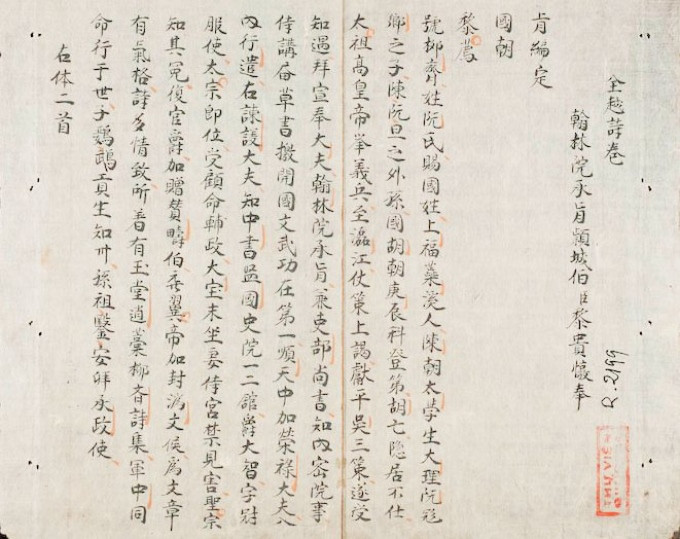 全越詩卷
翰林院承旨頴城伯臣黎貴惇奉
旨編定
國朝
黎廌
號抑齋姓阮氏賜國姓上福蘂溪人陳朝太學生大理阮飛
卿之子陳阮旦之外孫國胡朝庚辰科登第胡亡隱居不仕
太祖高皇帝挙義兵至瀘江仗策上謁獻平吳三策遂受
知遇拜宣奉大夫翰林院承旨兼吏部尚書知內密院事
侍講居草書檄開國文武功在第一順天中加榮祿大夫入
內行遣右諫議大夫知中書監國史院一二舘爵大智字冠
服使太宗即位受顧命輔政大宝末坐妾侍宮禁見害聖宗
知其冤復官爵加贈贊疇伯襄翼帝加封濟文侯為文章
有氣格詩多情致所著有玉堂遺藁抑齋詩集軍中同
命行于世子鸚鵡員生知州孫祖鑒安邦承政使
右体二首
R.2199